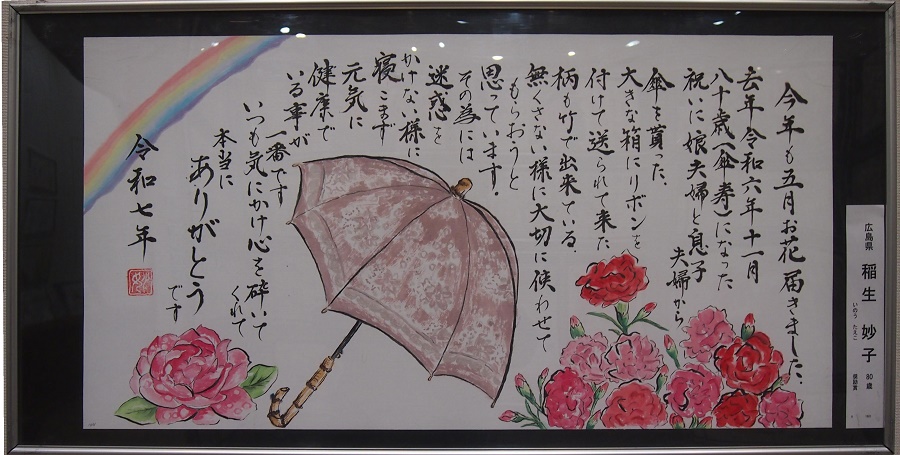 今年も五月お花届きました、
去年令和六年十一月
八十歳(傘寿)になった
祝いに娘夫婦と息子
夫婦から
傘を貰った、
大きな箱にリボンを
付けて送られて来た
柄も竹で出来ている
無くさない様に大切に使わせて
もらおうと
思っています。
その為には
迷惑を
かけない様に
寝こまず
元気に
健康で
いる事が
一番です
いつも気にかけ心を砕いて
くれて
本当に
ありがとう
です
令和七年
広島県 稲生 妙子 80歳
いのう たえこ
奨励賞